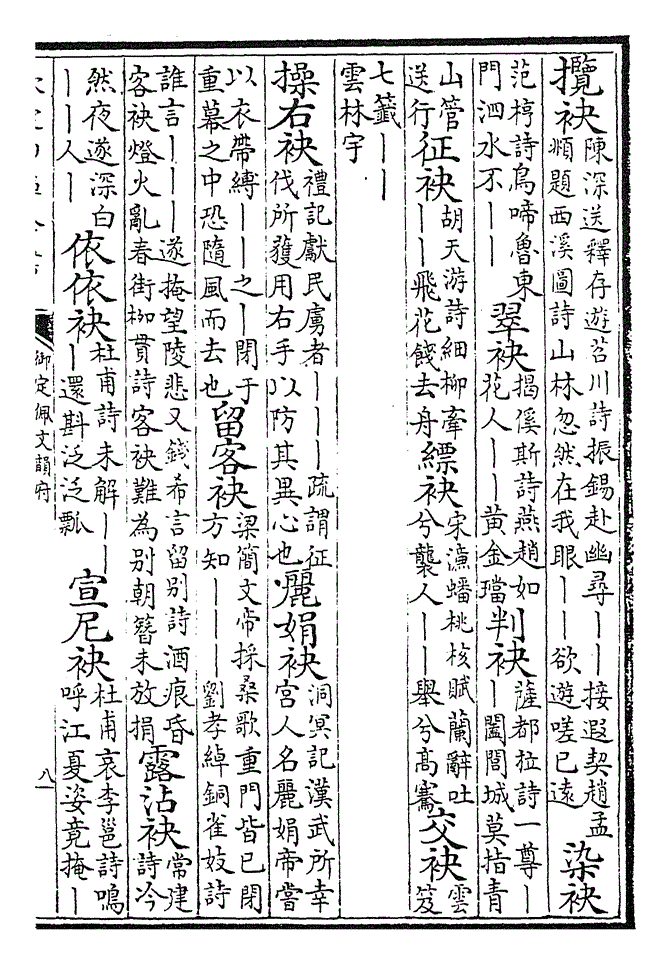 攬袂 陳深送釋存遊苕川詩振錫赴幽尋——接遐契趙孟頫題西溪圖詩山林忽然在我眼——欲遊嗟已遠 染袂
范梈詩烏啼魯東門泗水不—— 翠袂 揭傒斯詩燕趙如花人——黃金璫 判袂 薩都拉詩一尊——闔閭城莫指青
山管送行 征袂 胡天游詩細柳牽——飛花餞去舟 縹袂 宋濂蟠桃核賦蘭辭吐兮襲人——舉兮高騫 交袂 雲笈
七籤——雲林宇
操右袂 禮記獻民虜者———疏謂征伐所獲用右手以防其異心也 麗娟袂 洞冥記漢武所幸宮人名麗娟帝嘗
以衣帶縛——之—閉于重幕之中恐隨風而去也 留客袂 梁簡文帝採桑歌重門皆已閉方知———劉孝綽銅雀妓詩
誰言———遂掩望陵悲又錢希言留別詩酒痕昏客袂燈火亂春街柳貫詩客袂難為別朝簪未放捐 露沾袂 常建詩今
然夜遂深白——人— 依依袂 杜甫詩未解———還斟泛泛瓢 宣尼袂 杜甫哀李邕詩鳴呼江夏姿竟掩—
御定佩文韻府
八